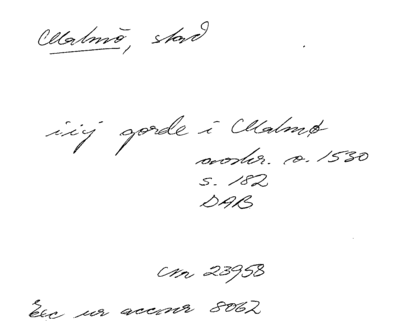 Malmö, stad
iiij gorde i Malmø
avskr. o. 1530
s. 182
DAB
cm 23958
Exc ur accnr 8062